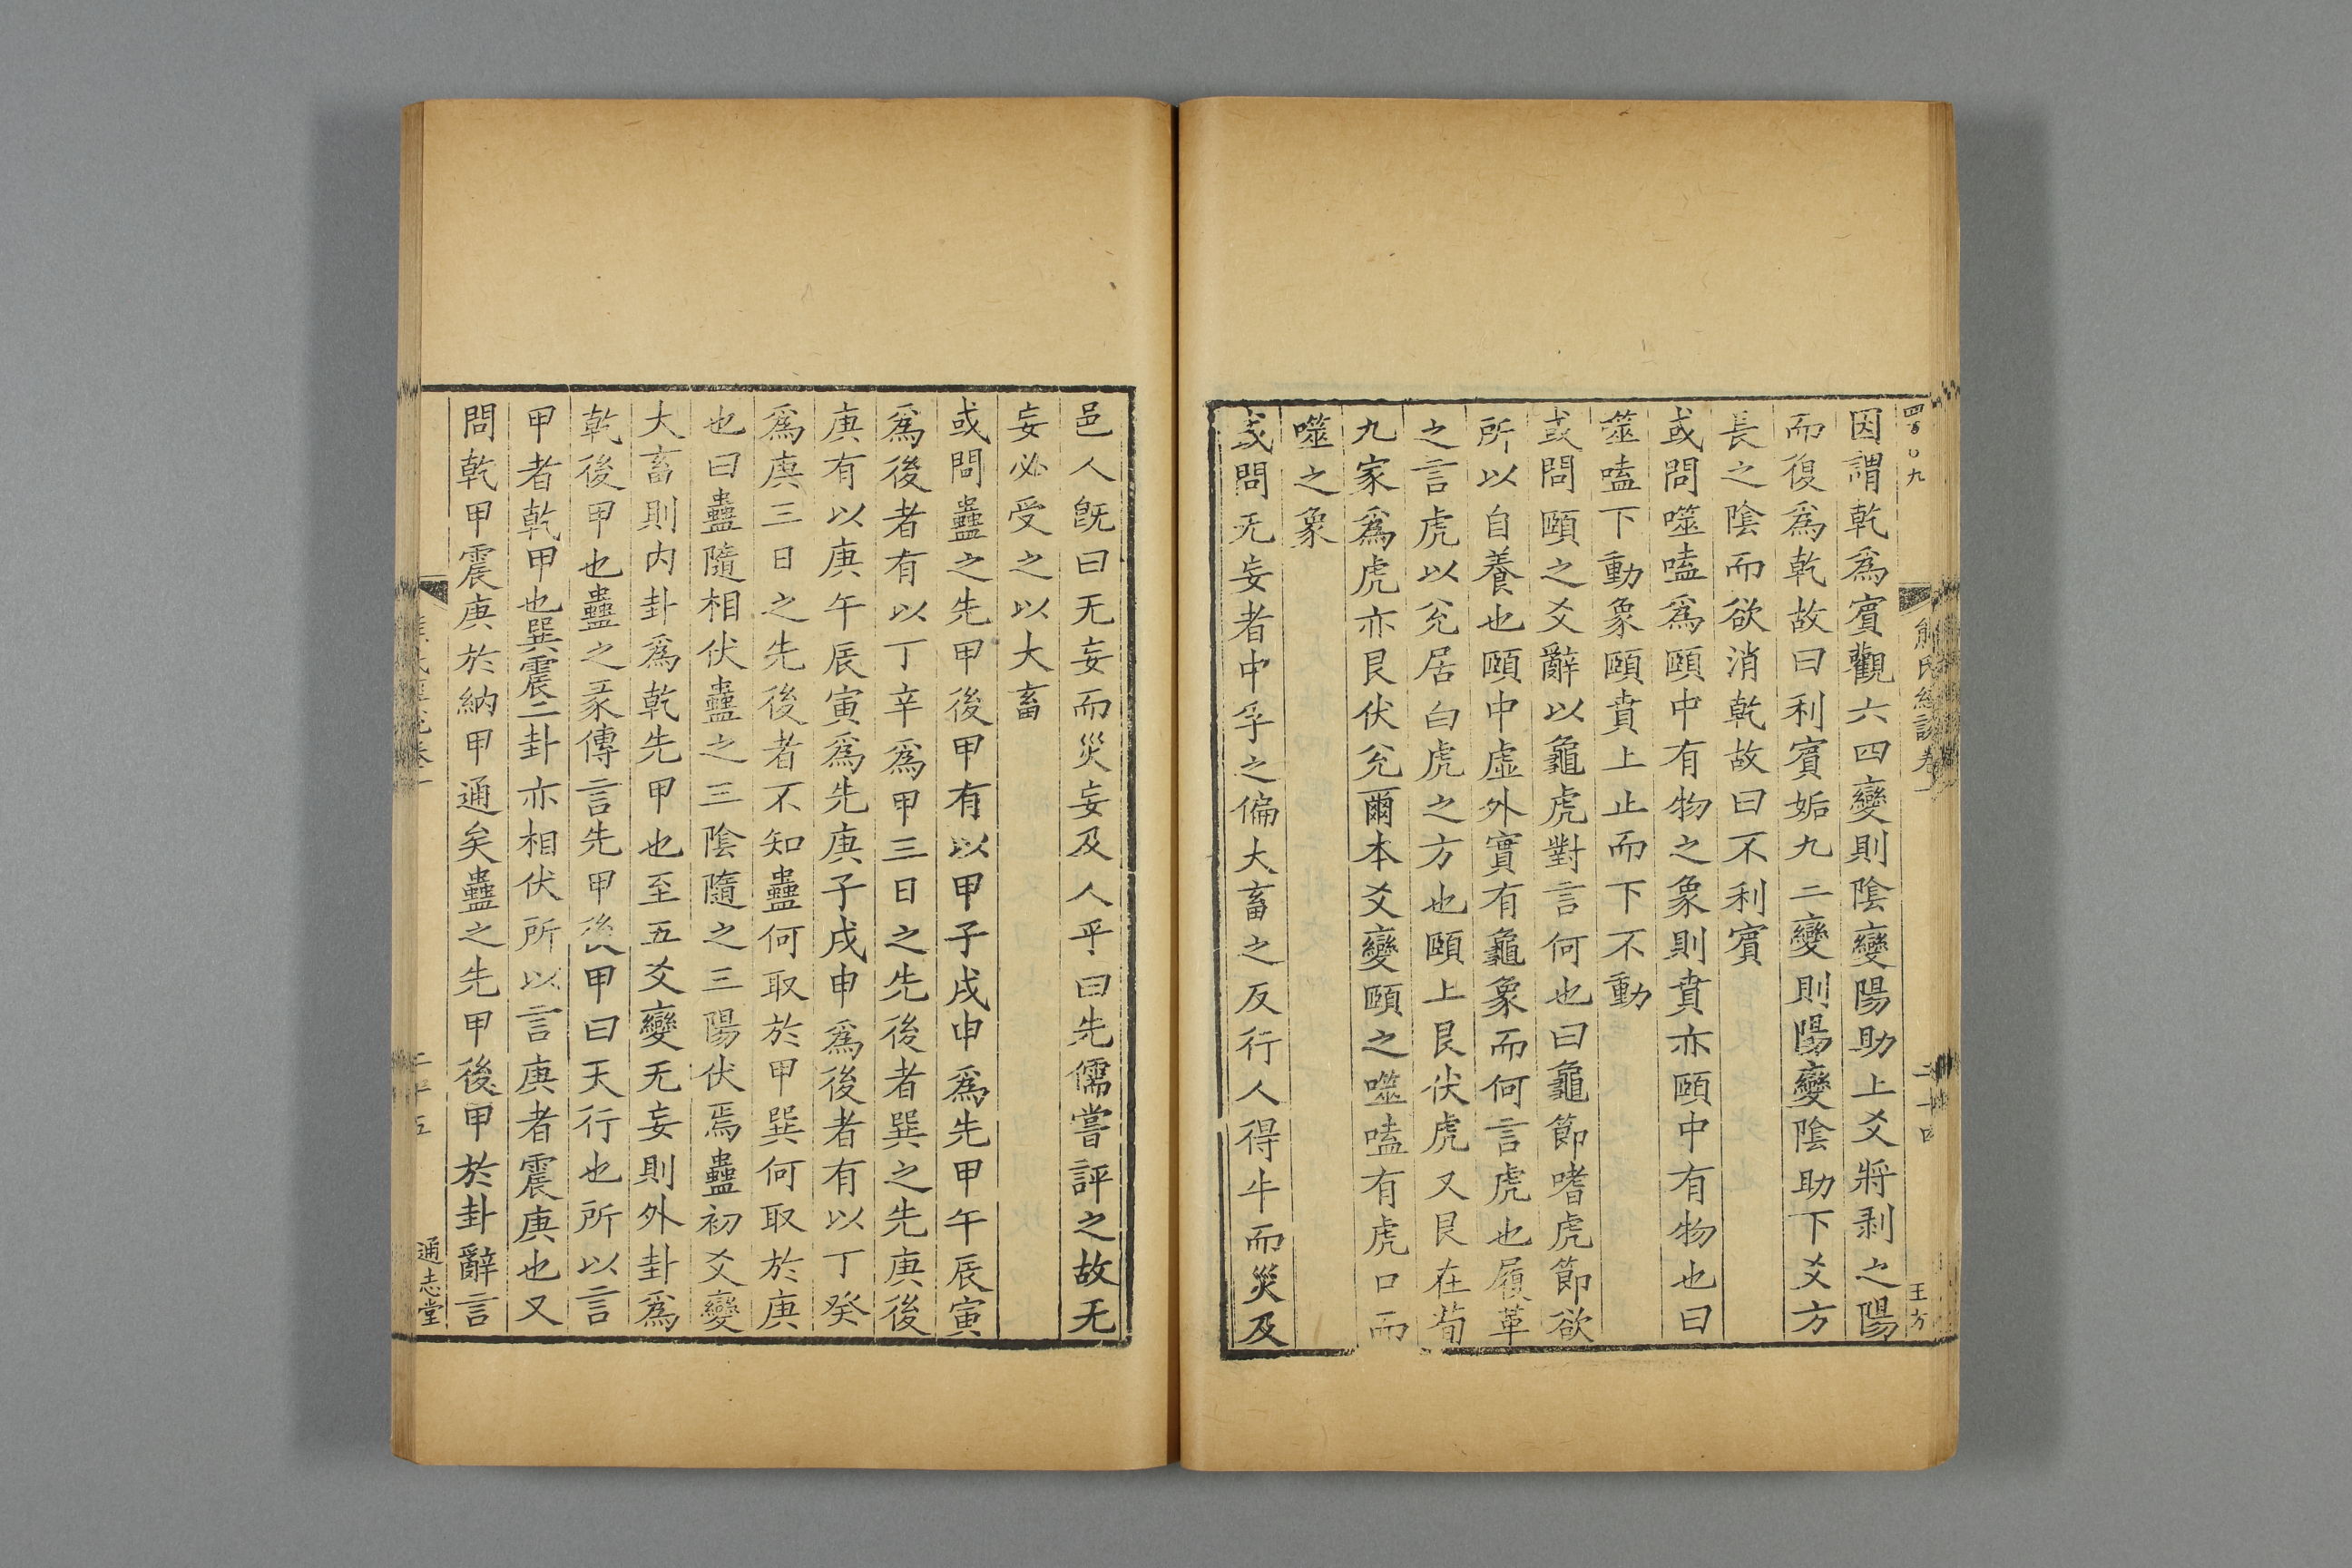 因謂乾爲賔觀六四變則陰變陽助上爻將剥之陽
而復爲乾故曰利賔姤九二變則陽變陰助下爻方
長之陰而欲消乾故曰不利賔
或問噬嗑爲頤中有物之象則賁亦頤中有物也曰
噬嗑下動象頤賁上止而下不動
或問頤之爻辭以龜虎對言何也曰龜節嗜虎節欲
所以自養也頤中虛外實有龜象而何言虎也履革
之言虎以兊居白虎之方也頤上艮伏虎又艮在荀
九家爲虎亦艮伏兊爾本爻變頤之噬嗑有虎口而
噬之象
或問无妄者中孚之偏大畜之反行人得牛而災及
邑人旣曰无妄而災妄及人乎曰先儒嘗評之故无
妄必受之以大畜
或問蠱之先甲後甲有以甲子戌申爲先甲午辰寅
爲後者有以丁辛爲甲三日之先後者巽之先庚後
庚有以庚午辰寅爲先庚子戌申爲後者有以丁癸
爲庚三日之先後者不知蠱何取於甲巽何取於庚
也曰蠱隨相伏蠱之三陰隨之三陽伏焉蠱初爻變
大畜則内卦爲乾先甲也至五爻變无妄則外卦爲
乾後甲也蠱之彖傳言先甲後甲曰天行也所以言
甲者乾甲也巽震二卦亦相伏所以言庚者震庚也又
問乾甲震庚於納甲通矣蠱之先甲後甲於卦辭言
通志堂